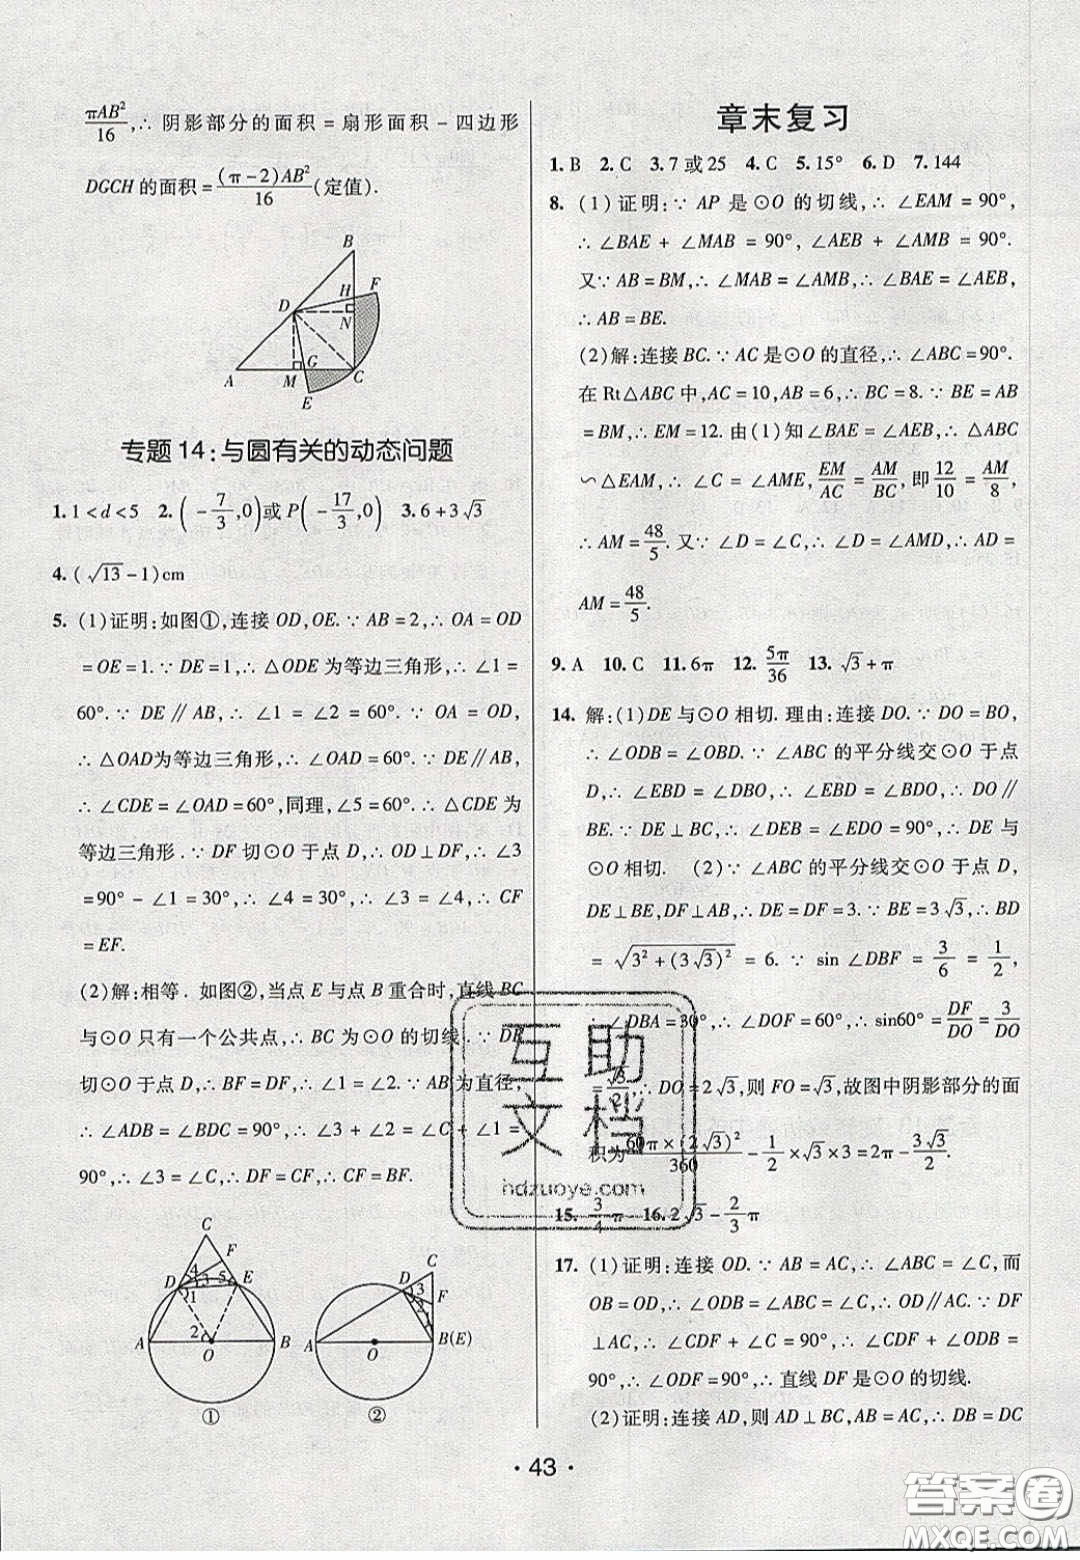 πAB²/16,∴ 阴影部分的面积 = 扇形面积 - 四边形
DGCH 的面积 = (π-2)AB²/16 (定值).
B
H F
D
N
G
A M C
E
专题 14:与圆有关的动态问题
1. 1<d<5 2. (-7/3,0)或 P(-17/3,0) 3. 6+3√3
4. (√13-1)cm
5. (1)证明:如图①,连接 OD,OE.∵ AB=2,∴ OA=OD
=OE=1.∵ DE=1,∴ △ODE 为等边三角形,∴ ∠1=
60°.∵ DE∥AB,∴ ∠1=∠2=60°.∵ OA=OD,
∴ △OAD为等边三角形,∴ ∠OAD=60°.∵ DE∥AB,
∴ ∠CDE=∠OAD=60°,同理,∠5=60°.∴ △CDE 为
等边三角形.∵ DF 切⊙O 于点 D,∴ OD⊥DF,∴ ∠3
=90°-∠1=30°,∴ ∠4=30°,∴ ∠3=∠4,∴ CF
=EF.
(2)解:相等. 如图②,当点 E 与点 B 重合时,直线 BC
与⊙O 只有一个公共点,∴ BC 为⊙O 的切线.∵ DF
切⊙O 于点 D,∴ BF=DF,∴ ∠1=∠2.∵ AB为直径,
∴ ∠ADB=∠BDC=90°,∴ ∠3+∠2=∠C+∠1=
90°,∴ ∠3=∠C,∴ DF=CF,∴ CF=BF.
C
F
D 4 3 5 E
1
2
A O B
①
C
D 3 F
2
1
A O B(E)
②
章末复习
1. B 2. C 3. 7 或 25 4. C 5. 15° 6. D 7. 144
8. (1)证明:∵ AP 是⊙O 的切线,∴ ∠EAM=90°,
∴ ∠BAE+∠MAB=90°,∠AEB+∠AMB=90°.
又∵ AB=BM,∴ ∠MAB=∠AMB,∴ ∠BAE=∠AEB,
∴ AB=BE.
(2)解:连接 BC.∵ AC 是⊙O 的直径,∴ ∠ABC=90°.
在 Rt△ABC 中,AC=10,AB=6,∴ BC=8.∵ BE=AB
=BM,∴ EM=12. 由(1)知∠BAE=∠AEB,∴ △ABC
∽△EAM,∴ ∠C=∠AME,EM/AC=AM/BC,即12/10=AM/8,
∴ AM=48/5. 又∵ ∠D=∠C,∴ ∠D=∠AMD,∴ AD=
AM=48/5.
9. A 10. C 11. 6π 12. 5π/36 13. √3+π
14. 解:(1)DE 与⊙O 相切. 理由:连接 DO.∵ DO=BO,
∴ ∠ODB=∠OBD.∵ ∠ABC 的平分线交⊙O 于点
D,∴ ∠EBD=∠DBO,∴ ∠EBD=∠BDO,∴ DO∥
BE.∵ DE⊥BC,∴ ∠DEB=∠EDO=90°,∴ DE 与
⊙O 相切. (2)∵ ∠ABC 的平分线交⊙O 于点 D,
DE⊥BE,DF⊥AB,∴ DE=DF=3.∵ BE=3√3,∴ BD
=√(3²+(3√3)²)=6.∵ sin∠DBF=3/6=1/2,
∴ ∠DBA=30°,∴ ∠DOF=60°,∴ sin60°=DF/DO=3/DO
=√3/2,∴ DO=2√3,则 FO=√3,故图中阴影部分的面
积为 60π×(2√3)²/360 - 1/2×√3×3=2π-3√3/2.
15. 3/4π 16. 2√3-2/3π
17. (1)证明:连接 OD.∵ AB=AC,∴ ∠ABC=∠C,而
OB=OD,∴ ∠ODB=∠ABC=∠C,∴ OD∥AC.∵ DF
⊥AC,∴ ∠CDF+∠C=90°,∴ ∠CDF+∠ODB=
90°,∴ ∠ODF=90°,∴ 直线 DF 是⊙O 的切线.
(2)证明:连接 AD,则 AD⊥BC,AB=AC,∴ DB=DC
· 43 ·
互助
文档
hdzuoye.com
答案圈
MXQE.COM